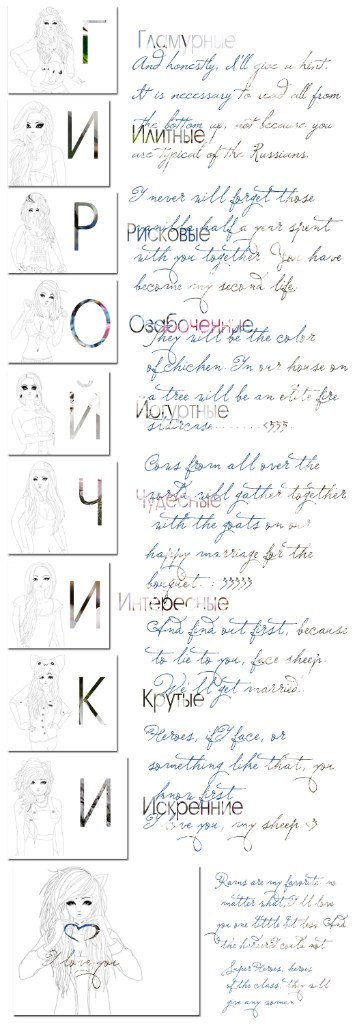 Г
Гламурные
And honestly, I'll give a hint.
It is necessary to read all from
the bottom up, not because you
are typical of the Russians.
И
Илитные
Р
I never will forget those
half a year spent
Рисковые
with you together. You have
become my second life.
О
Озабоченные
They will be the color
of chicken. In our house on
a tree will be an elite fire
staircase
Й
Йогуртные
Ч
Cons from all over the
will gather together
Чудесные
with the goats on our
happy marriage for the
bouquet. : 33333
И
Интересные
And find out first, because
to lie to you, face sheep.
We'll get married.
К
Крутые
Heroes, if I face, or
something like that, you
know first
И
Искренние
I love you, my sheep <3
I love you
Rams are my favorite no
matter what. I'll love
you one little bit less. And
I could not
SuperHeroes, heroes
of the class, they will
give any woman